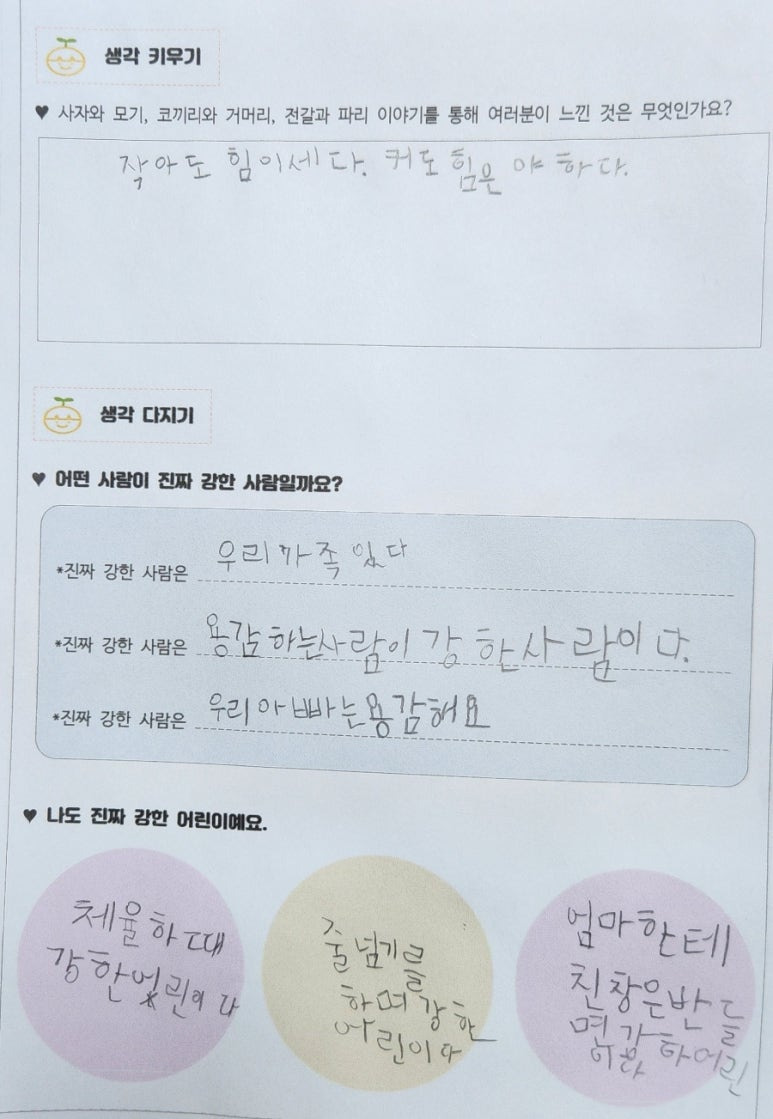 생각 키우기
♥ 사자와 모기, 코끼리와 거머리, 전갈과 파리 이야기를 통해 여러분이 느낀 것은 무엇인가요?
작아도 힘이세다. 커도 힘은 야하다.
생각 다지기
♥ 어떤 사람이 진짜 강한 사람일까요?
*진짜 강한 사람은 우리가족있다
*진짜 강한 사람은 용감하는사람이 강한사람이다.
*진짜 강한 사람은 우리아빠는용감해요
♥ 나도 진짜 강한 어린이예요.
체율하때
강한엋린이다
줄넘기를
하며강한
어린이다
엄마한테
친창은반들
면 강하어린